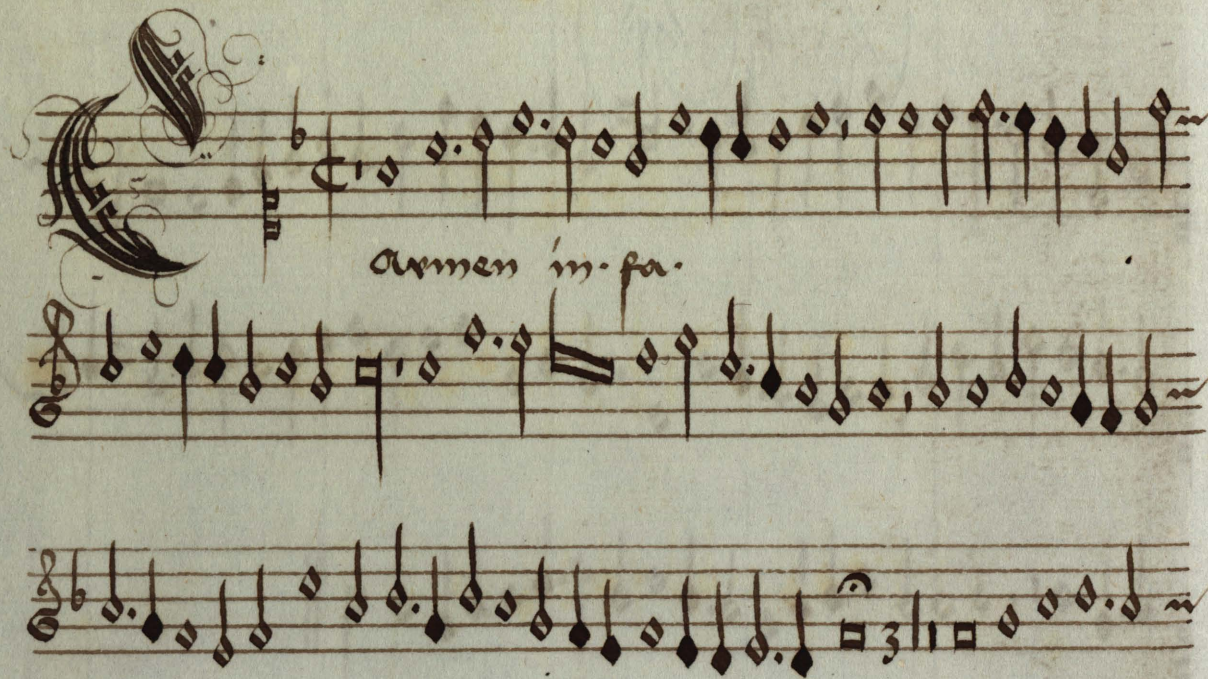 Carmen in fa.